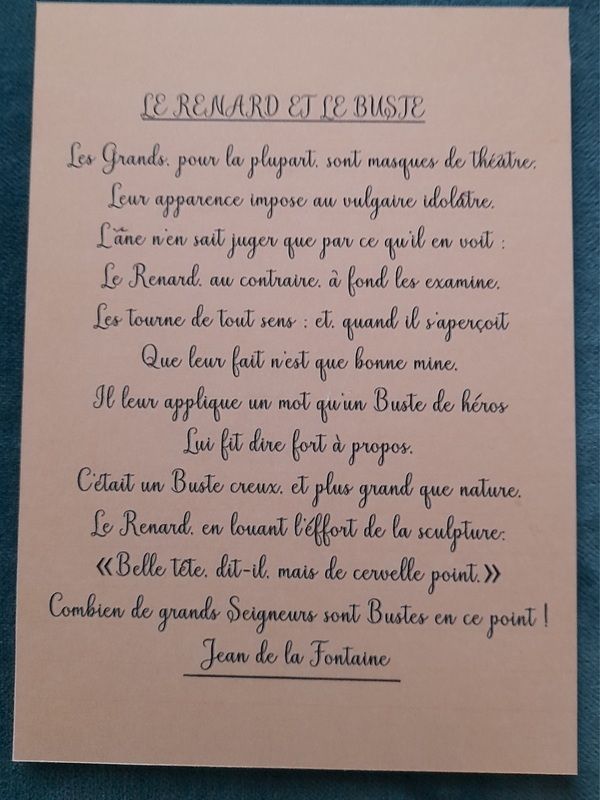 LE RENARD ET LE BUSTE
Les Grands, pour la plupart, sont masques de théâtre;
Leur apparence impose au vulgaire idolâtre.
L'âne n'en sait juger que par ce qu'il en voit :
Le Renard, au contraire, à fond les examine,
Les tourne de tout sens ; et, quand il s'aperçoit
Que leur fait n'est que bonne mine,
Il leur applique un mot qu'un Buste de héros
Lui fit dire fort à propos.
C'était un Buste creux, et plus grand que nature.
Le Renard, en louant l'éffort de la sculpture:
«Belle tête, dit-il, mais de cervelle point.»
Combien de grands Seigneurs sont Bustes en ce point !
Jean de la Fontaine